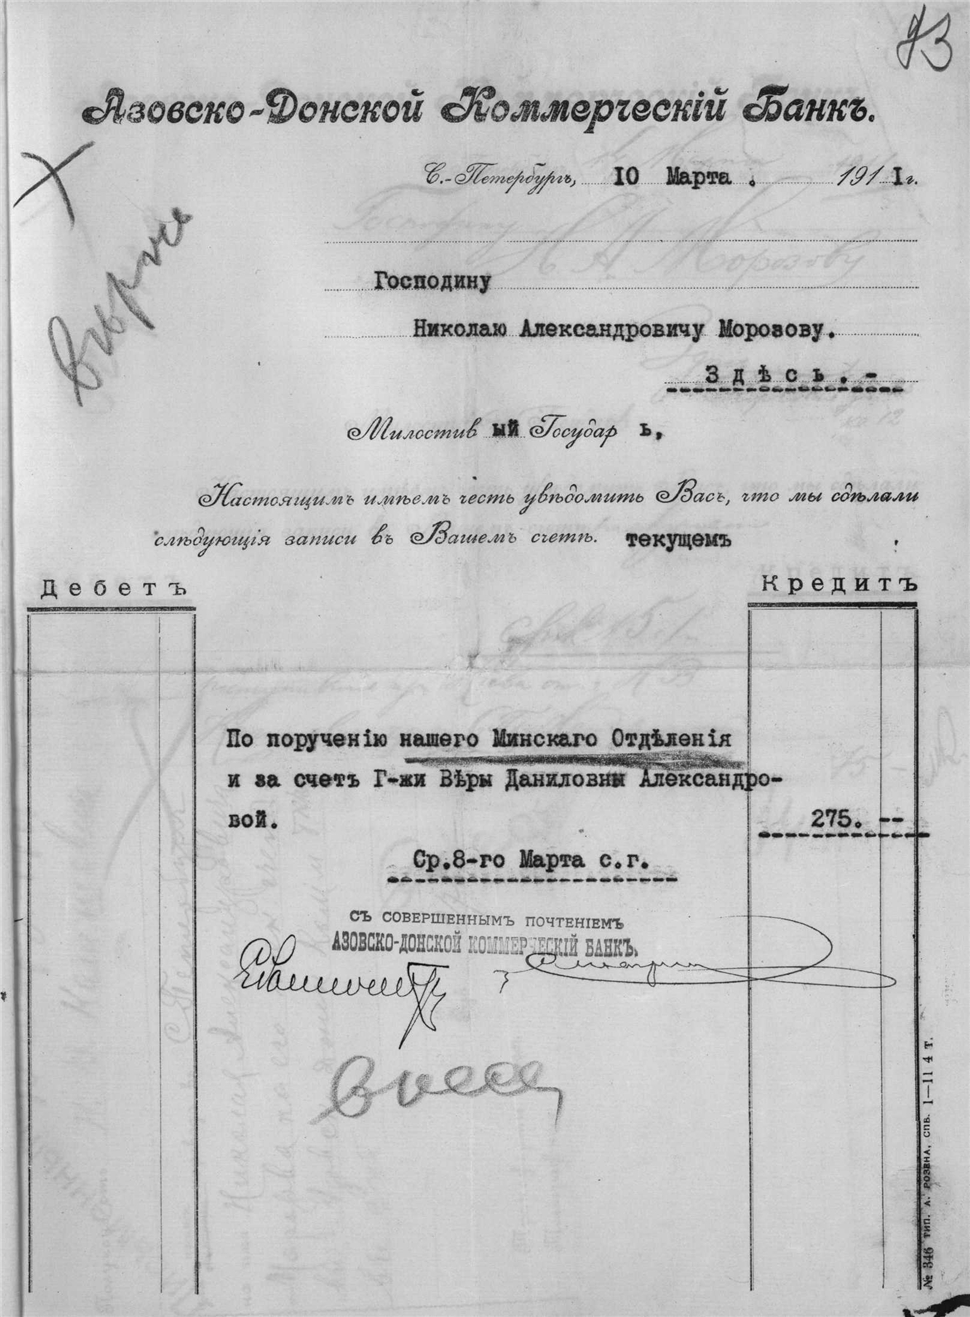 93
Азовско-Донской Коммерческій Банкъ.
С.-Петербургъ, 10 Марта . 1911г.
Господину
Николаю Александровичу Морозову.
Здѣсь.-
Милостивый Государь,
Настоящимъ имѣемъ честь увѣдомить Васъ, что мы сдѣлали
слѣдующія записи въ Вашемъ счетѣ. текущемъ
Дебетъ Кредитъ
По порученію нашего Минскаго Отдѣленія
и за счетъ Г-жи Вѣры Даниловны Александро-
вой. 275. --
Ср.8-го Марта с.г.
СЪ СОВЕРШЕННЫМЪ ПОЧТЕНІЕМЪ
АЗОВСКО-ДОНСКОЙ КОММЕРЧЕСКІЙ БАНКЪ.
№ 346 ТИП. А. РОЗЕНА, СПБ. 1—11 4 т.